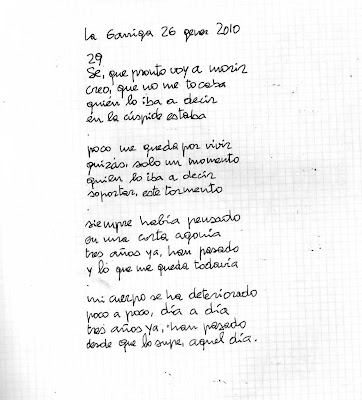 La Garriga 26 gener 2010
29
Se, que pronto voy a morir
creo, que no me tocaba
quién lo iba a decir
en la cúspide estaba
.
poco me queda por vivir
quizás, solo un momento
quién lo iba a decir
soportar, este tormento
.
siempre había pensado
en una corta agonía
tres años ya, han pasado
y lo que me queda todavía
.
mi cuerpo se ha deteriorado
poco a poco, día a día
tres años ya, han pasado
desde que lo supe, aquel día.